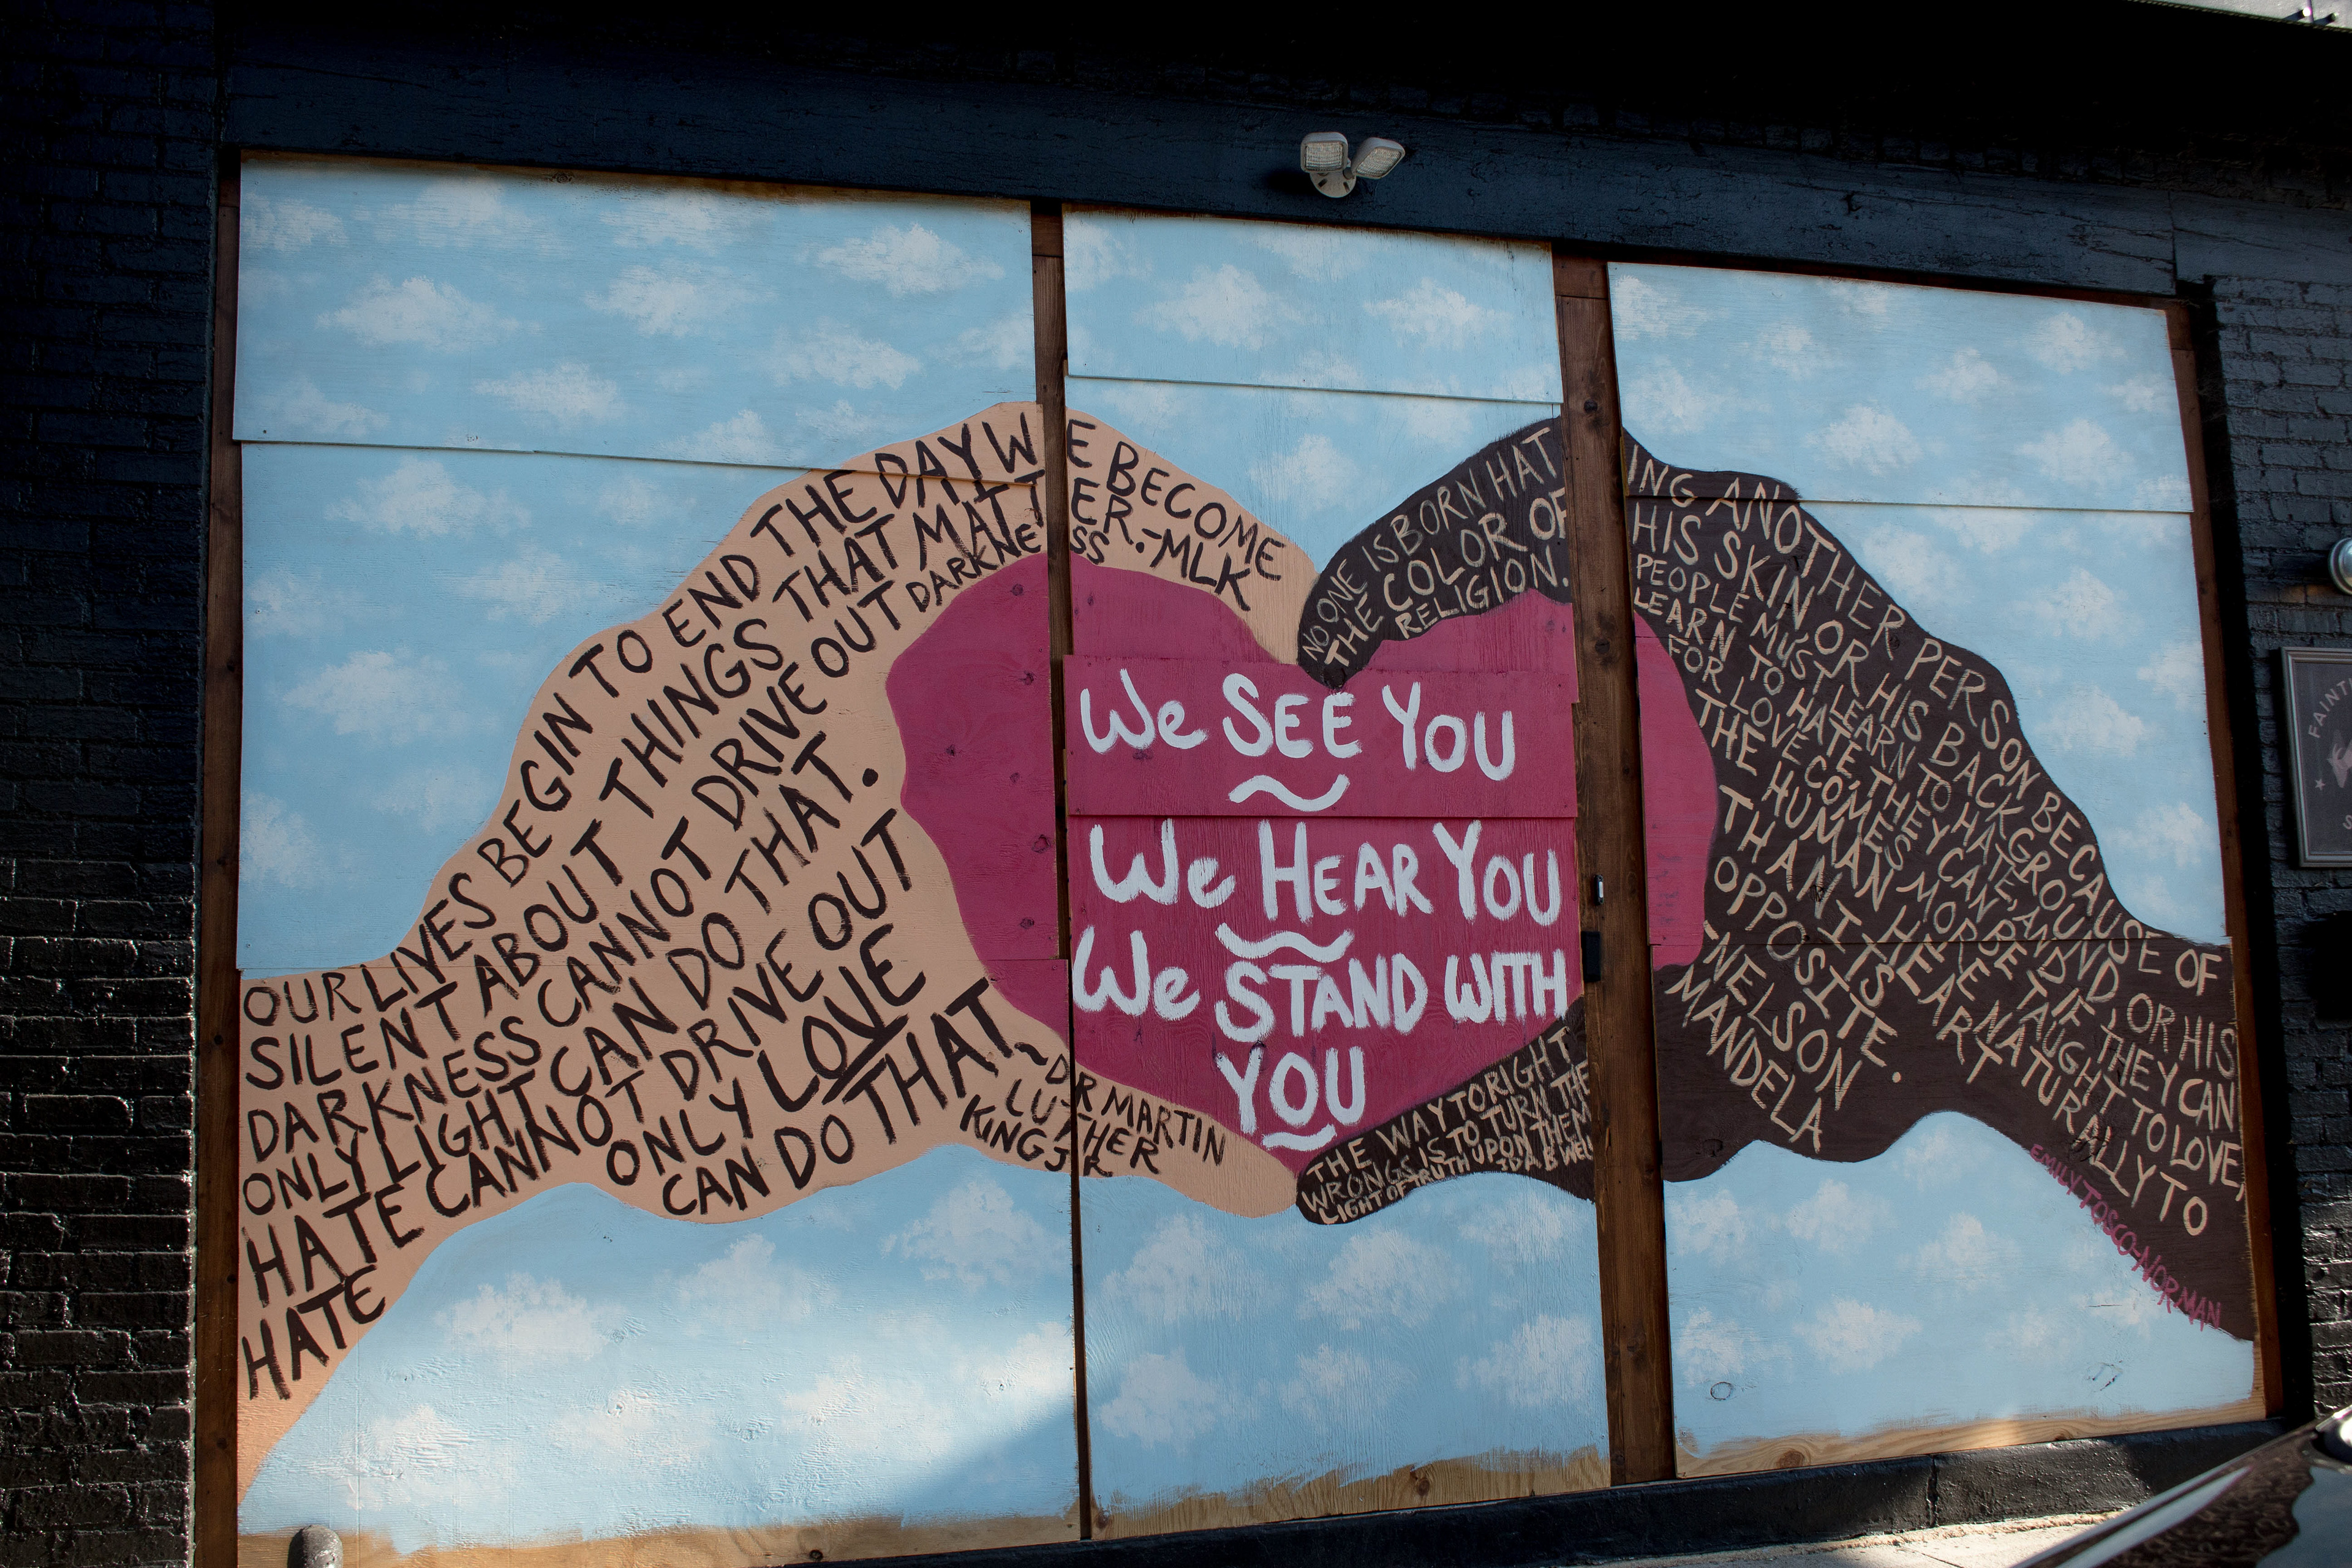 OUR LIVES BEGIN TO END THE DAY WE BECOME
SILENT ABOUT THINGS THAT MATTER.-MLK
DARKNESS CANNOT DRIVE OUT DARKNESS
ONLY LIGHT CAN DO THAT.
HATE CANNOT DRIVE OUT
HATE ONLY LOVE
CAN DO THAT
~DR MARTIN
LUTHER
KING JR
We SEE YOU
We HEAR YOU
We STAND WITH
YOU
NO ONE IS BORN HATING ANOTHER PERSON BECAUSE OF
THE COLOR OF HIS SKIN OR HIS BACKGROUND, OR HIS
RELIGION. PEOPLE MUST LEARN TO HATE, AND IF THEY CAN
LEARN TO HATE, THEY CAN BE TAUGHT TO LOVE,
FOR LOVE COMES MORE NATURALLY TO
THE HUMAN HEART
THAN ITS
OPPOSITE.
-NELSON
MANDELA
THE WAY TO RIGHT
WRONGS IS TO TURN THE
LIGHT OF TRUTH UPON THEM
IDA B WELL
EMILY TOSCO-NORMAN